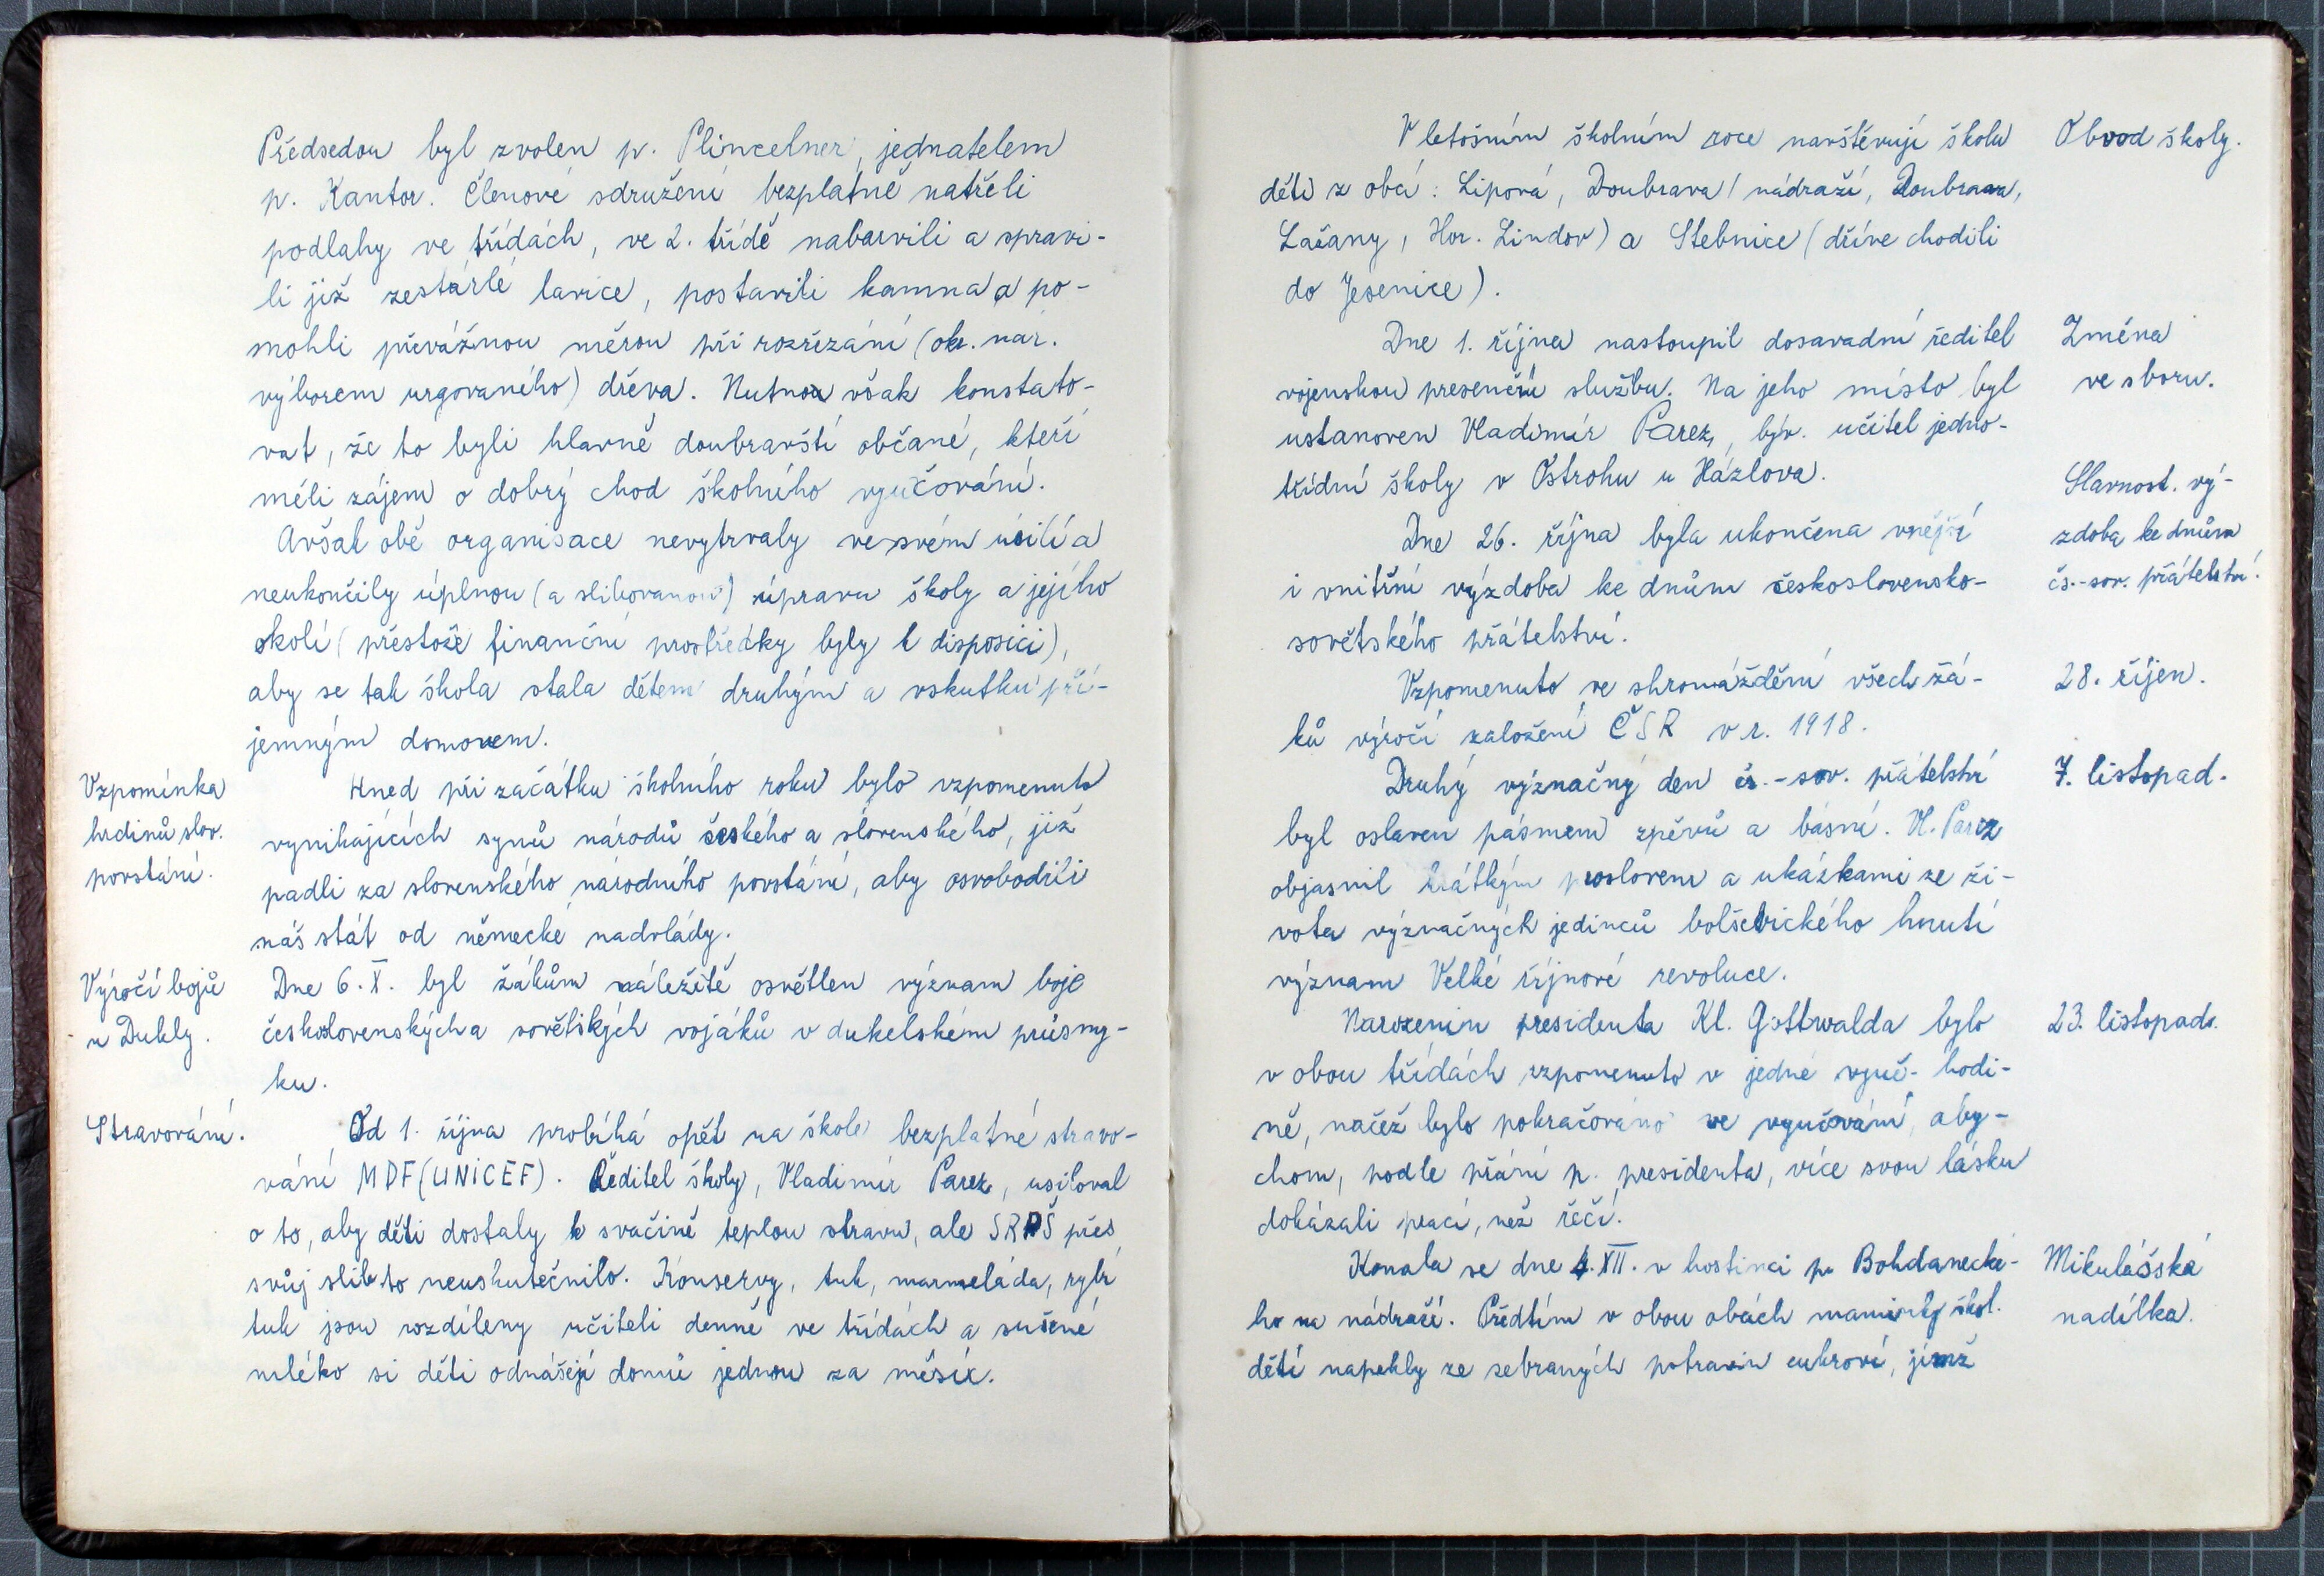 Předsedou byl zvolen p. Plincelner, jednatelem
p. Kantor. Členové sdružení bezplatně natřeli
podlahy ve třídách, ve 2. třídě nabarvili a spravi-
li již zestárlé lavice, postavili kamna a po-
mohli převážnou měrou při rozřezání (okr. nár.
výborem urgovaného) dřeva. Nutno však konstato-
vat, že to byli hlavně doubravští občané, kteří
měli zájem o dobrý chod školního vyučování.
Avšak obě organisace nevytrvaly ve svém úsilí a
neukončily úplnou (a slibovanou) úpravu školy a jejího
okolí (přestože finanční prostředky byly k disposici),
aby se tak škola stala dětem druhým a vskutku pří-
jemným domovem.
Vzpomínka
hrdinů slov.
povstání.
Hned při začátku školního roku bylo vzpomenuto
vynikajících synů národů českého a slovenského, již
padli za slovenského národního povstání, aby osvobodili
náš stát od německé nadvlády.
Výročí bojů
u Dukly.
Dne 6. X. byl žákům náležitě osvětlen význam boje
československých a sovětských vojáků v dukelském průsmy-
ku.
Stravování.
Od 1. října probíhá opět na škole bezplatné stravo-
vání MDF (UNICEF). Ředitel školy, Vladimír Parez, usiloval
o to, aby děti dostaly k svačině teplou stravu, ale SRPŠ přes
svůj slib to neuskutečnilo. Konservy, tuk, marmeláda, rybí
tuk jsou rozdíleny učiteli denně ve třídách a sušené
mléko si děti odnášejí domů jednou za měsíc.
V letošním školním roce navštěvují školu
děti z obcí: Lipová, Doubrava (nádraží, Doubrava,
Lažany, Hor. Lindov) a Stebnice (dříve chodili
do Jesenice).
Obvod školy.
Dne 1. října nastoupil dosavadní ředitel
vojenskou presenční službu. Na jeho místo byl
ustanoven Vladimír Parez, býv. učitel jedno-
třídní školy v Ostrohu u Házlova.
Změna
ve sboru.
Dne 26. října byla ukončena vnější
i vnitřní výzdoba ke dnům československo-
sovětského přátelství.
Slavnost. vý-
zdoba ke dnům
čs.-sov. přátelství.
Vzpomenuto ve shromáždění všech žá-
ků výročí založení ČSR v r. 1918.
28. říjen.
Druhý význačný den čs.-sov. přátelství
byl oslaven pásmem zpěvů a básní. Vl. Parez
objasnil krátkým proslovem a ukázkami ze ži-
vota význačných jedinců bolševického hnutí
význam Velké říjnové revoluce.
7. listopad.
Narozenin presidenta Kl. Gottwalda bylo
v obou třídách vzpomenuto v jedné vyuč. hodi-
ně, načež bylo pokračováno ve vyučování, aby-
chom, podle přání p. presidenta, více svou lásku
dokázali prací, než řečí.
23. listopad.
Konala se dne 4. XII. v hostinci p. Bohdanecké-
ho na nádraží. Předtím v obou obcích maminky škol.
dětí napekly ze sebraných potravin cukroví, jímž
Mikulášská
nadílka.